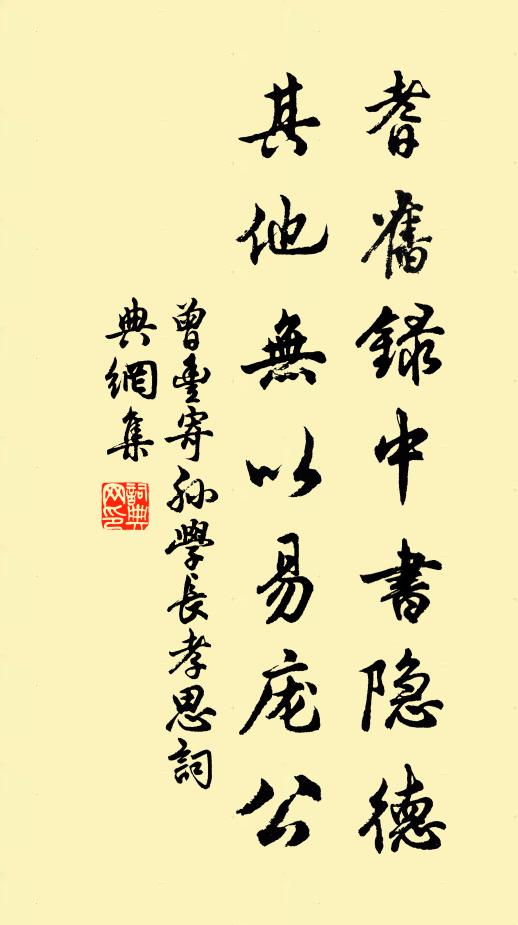 耆舊録中書隐德
其他無以易庞公
曾豊寄孙學長孝思詞
典網集
詞典網印